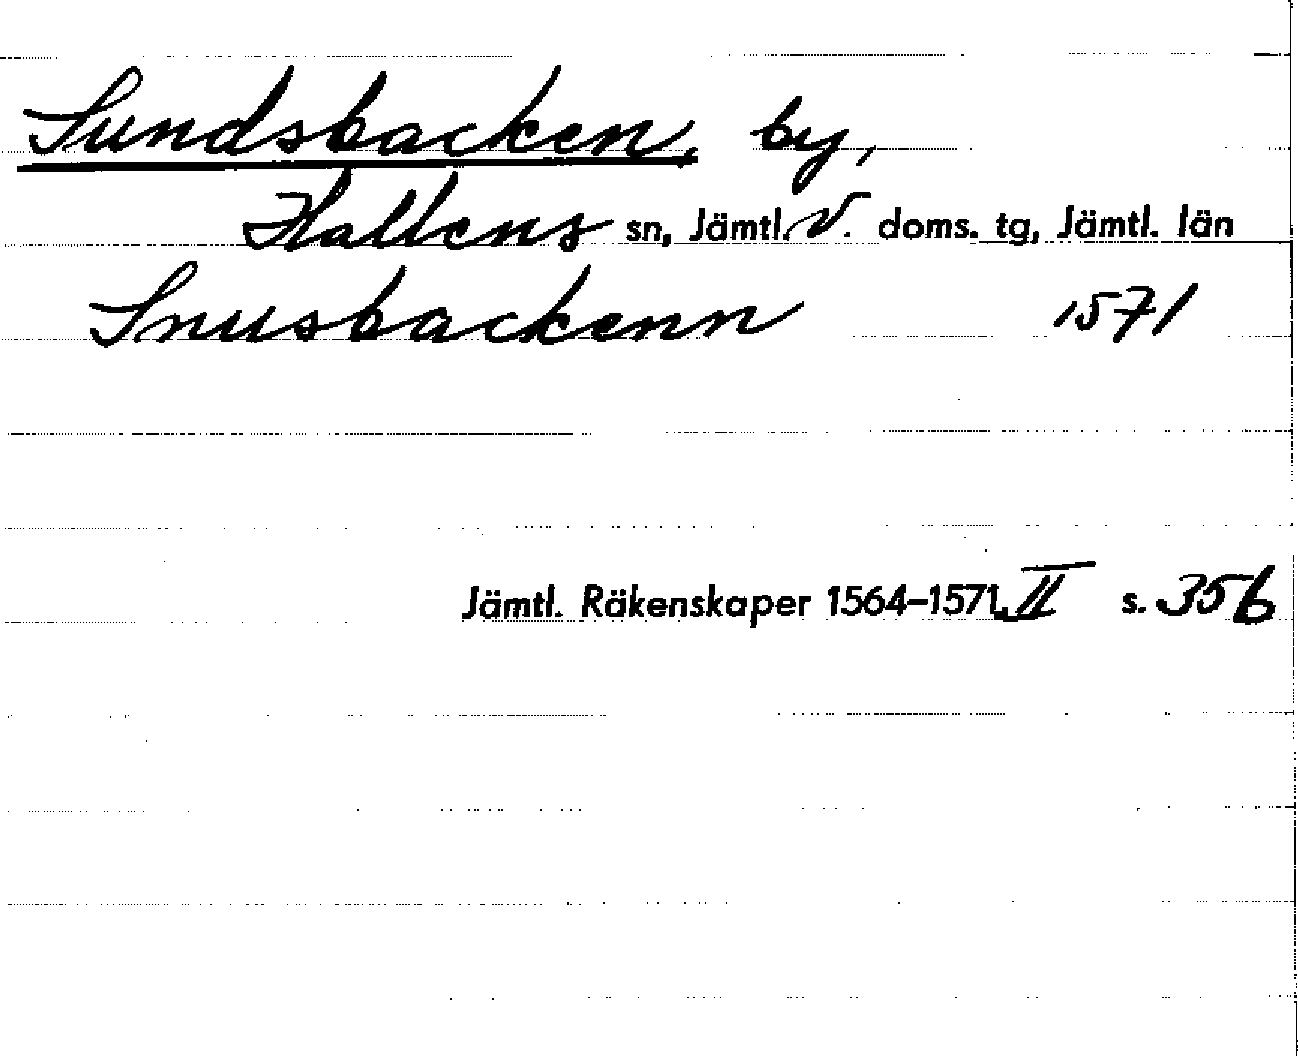 Sundsbacken, by,
Hallens sn, Jämtl. V. doms. tg, Jämtl. län
Snusbackenn 1571
Jämtl. Räkenskaper 1564–1571, II s. 356